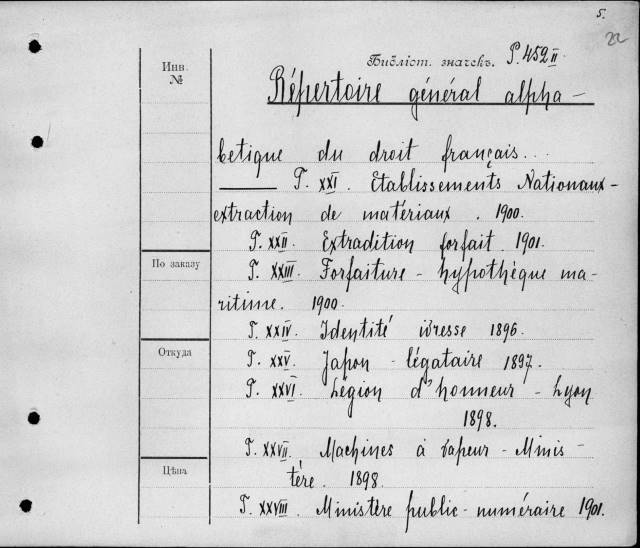 5.
22
Библіот. значекъ. P. 452 II
Инв.
№
Répertoire général alpha-
betique du droit français...
——— T. XXI. Etablissements Nationaux-
extraction de matériaux. 1900.
T. XXII. Extradition forfait. 1901.
По заказу
T. XXIII. Forfaiture - hypothèque ma-
ritime. 1900.
T. XXIV. Identité ivresse 1896.
Откуда
T. XXV. Japon - légataire 1897.
T. XXVI. Légion d'honneur - Lyon
1898.
T. XXVII. Machines à vapeur - Minis-
Цѣна
tère. 1898.
T. XXVIII. Ministère public - numéraire 1901.